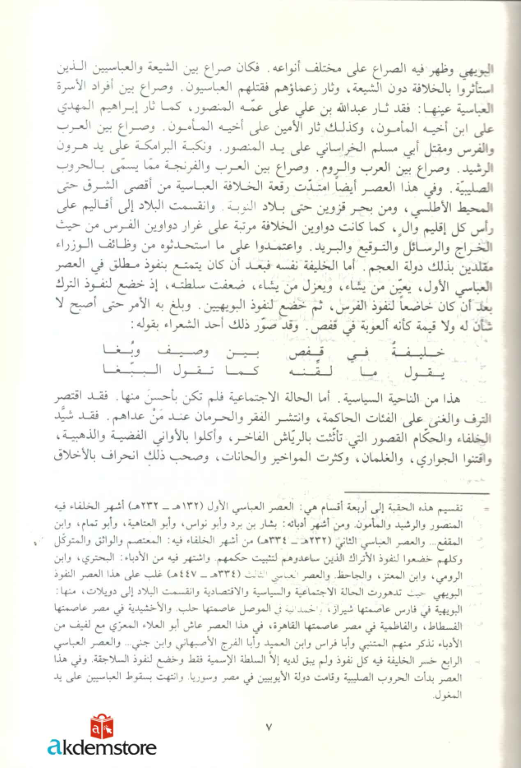 البويهي وظهر فيه الصراع على مختلف أنواعه. فكان صراع بين الشيعة والعباسيين الذين
استأثروا بالخلافة دون الشيعة، وثار زعماؤهم فقتلهم العباسيون. وصراع بين أفراد الأسرة
العباسية عينها: فقد ثار عبدالله بن علي على عمّه المنصور، كما ثار إبراهيم المهدي
على ابن أخيه المأمون، وكذلك ثار الأمين على أخيه المأمون. وصراع بين العرب
والفرس ومقتل أبي مسلم الخراساني على يد المنصور. ونكبة البرامكة على يد هرون
الرشيد. وصراع بين العرب والروم. وصراع بين العرب والفرنجة ممّا يسمّى بالحروب
الصليبيّة. وفي هذا العصر أيضاً امتدّت رقعة الخلافة العباسية من أقصى الشرق حتى
المحيط الأطلسي، ومن بحر قزوين حتى بلاد النوبة. وانقسمت البلاد إلى أقاليم على
رأس كل إقليم والٍ، كما كانت دواوين الخلافة مرتبة على غرار دواوين الفرس من حيث
الخراج والرسائل والتوقيع والبريد. واعتمدوا على ما استحدثوه من وظائف الوزراء
مقلدين بذلك دولة العجم. أما الخليفة نفسه فبعد أن كان يتمتع بنفوذ مطلق في العصر
العباسي الأول، يعيّن من يشاء، ويعزل من يشاء، ضعفت سلطته، إذ خضع لنفوذ الترك
بعد أن كان خاضعاً لنفوذ الفرس، ثم خضع لنفوذ البويهيين. وبلغ به الأمر حتى أصبح لا
شأن له ولا قيمة كأنه ألعوبة في قفص. وقد صوّر ذلك أحد الشعراء بقوله:
خليفةٌ في قفص بين وصيف وبُغا
يقول ما لقّنه كما تقول الببّغا
هذا من الناحية السياسية. أما الحالة الاجتماعية فلم تكن بأحسن منها. فقد اقتصر
الترف والغنى على الفئات الحاكمة، وانتشر الفقر والحرمان عند مَنْ عداهم. فقد شيَّد
الخلفاء والحكّام القصور التي تأثثت بالرياش الفاخر، وأكلوا بالأواني الفضية والذهبية،
واقتنوا الجواري، والغلمان، وكثرت المواخير والحانات، وصحب ذلك انحراف بالأخلاق
= تقسيم هذه الحقبة إلى أربعة أقسام هي: العصر العباسي الأول (١٣٢هـ ــ ٢٣٢هـ) أشهر الخلفاء فيه
المنصور والرشيد والمأمون. ومن أشهر أدبائه: بشار بن برد وأبو نواس، وأبو العتاهية، وأبو تمام، وابن
المقفع... والعصر العباسي الثاني (٢٣٢هـ ــ ٣٣٤هـ) من أشهر الخلفاء فيه: المعتصم والواثق والمتوكّل
وكلهم خضعوا لنفوذ الأتراك الذين ساعدوهم لتثبيت حكمهم. واشتهر فيه من الأدباء: البحتري، وابن
الرومي، وابن المعتز، والجاحظ. والعصر العباسي الثالث (٣٣٤هـ ــ ٤٤٧هـ) غلب على هذا العصر النفوذ
البويهي حيث تدهورت الحالة الاجتماعية والسياسية والاقتصادية وانقسمت البلاد إلى دويلات، منها:
البويهية في فارس عاصمتها شيراز، في الموصل عاصمتها حلب والأخشيدية في مصر عاصمتها
الفسطاط، والفاطمية في مصر عاصمتها القاهرة، في هذا العصر عاش أبو العلاء المعرّي مع لفيف من
الأدباء نذكر منهم المتنبي وأبا فراس وابن العميد وأبا الفرج الأصبهاني وابن جني... والعصر العباسي
الرابع خسر الخليفة فيه كل نفوذ ولم يبق لديه إلاّ السلطة الإسمية فقط وخضع لنفوذ السلاجقة. وفي هذا
العصر بدأت الحروب الصليبية وقامت دولة الأيوبيين في مصر وسوريا. وانتهت بسقوط العباسيين على يد
المغول.
٧
akdemstore